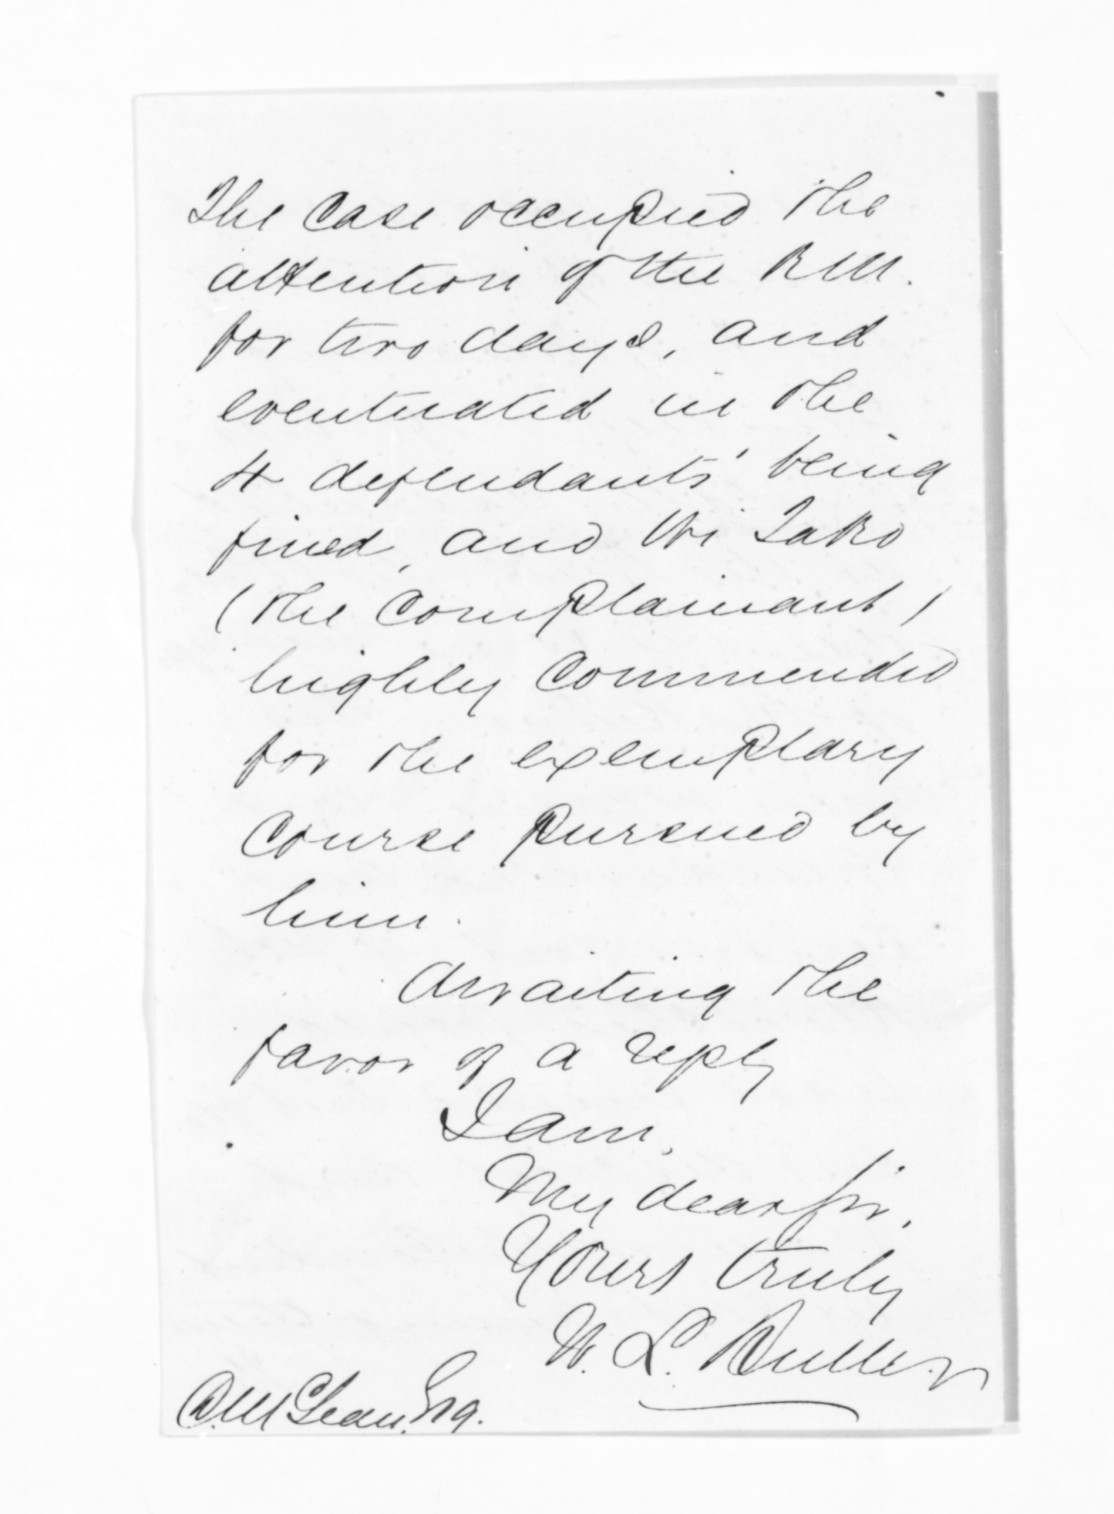 The Case occupied the
attention of the R.M.
for two days, and
eventuated in the
4 defendants' being
fined, and Wi Tako
(the Complainant)
highly Commended
for the exemplary
Course pursued by
him.
Awaiting the
favor of a reply
I am,
My dear Sir,
Yours truly
W. L. Buller
D. McLean, Esq.